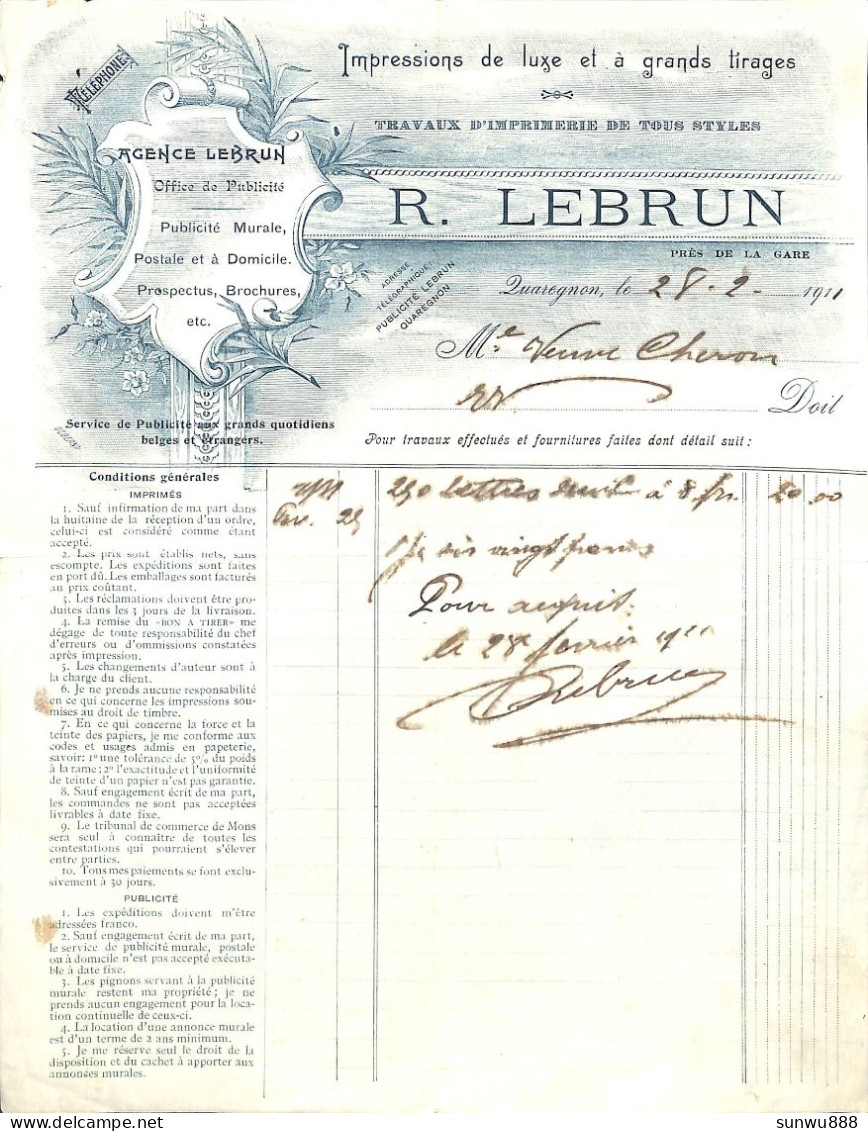 TÉLÉPHONE
AGENCE LEBRUN
Office de Publicité
Publicité Murale,
Postale et à Domicile.
Prospectus, Brochures,
etc.
Service de Publicité aux grands quotidiens
belges et étrangers.
Impressions de luxe et à grands tirages
TRAVAUX D'IMPRIMERIE DE TOUS STYLES
R. LEBRUN
PRÈS DE LA GARE
ADRESSE
TÉLÉGRAPHIQUE:
PUBLICITÉ LEBRUN
QUAREGNON
Quaregnon, le 28-2-1911
Me Veuve Cheron
Doit
Pour travaux effectués et fournitures faites dont détail suit :
1911
Fev. 25
250 lettres deuil à 8 fr. 20.00
vingt francs
Pour acquit
le 28 février 1911
Lebrun
Conditions générales
IMPRIMÉS
1. Sauf infirmation de ma part dans
la huitaine de la réception d'un ordre,
celui-ci est considéré comme étant
accepté.
2. Les prix sont établis nets, sans
escompte. Les expéditions sont faites
en port dû. Les emballages sont facturés
au prix coûtant.
3. Les réclamations doivent être pro-
duites dans les 3 jours de la livraison.
4. La remise du «BON A TIRER» me
dégage de toute responsabilité du chef
d'erreurs ou d'ommissions constatées
après impression.
5. Les changements d'auteur sont à
la charge du client.
6. Je ne prends aucune responsabilité
en ce qui concerne les impressions sou-
mises au droit de timbre.
7. En ce qui concerne la force et la
teinte des papiers, je me conforme aux
codes et usages admis en papeterie,
savoir: 1º une tolérance de 5% du poids
à la rame; 2º l'exactitude et l'uniformité
de teinte d'un papier n'est pas garantie.
8. Sauf engagement écrit de ma part,
les commandes ne sont pas acceptées
livrables à date fixe.
9. Le tribunal de commerce de Mons
sera seul à connaître de toutes les
contestations qui pourraient s'élever
entre parties.
10. Tous mes paiements se font exclu-
sivement à 30 jours.
PUBLICITÉ
1. Les expéditions doivent m'être
adressées franco.
2. Sauf engagement écrit de ma part,
le service de publicité murale, postale
ou à domicile n'est pas accepté exécuta-
ble à date fixe.
3. Les pignons servant à la publicité
murale restent ma propriété; je ne
prends aucun engagement pour la loca-
tion continuelle de ceux-ci.
4. La location d'une annonce murale
est d'un terme de 2 ans minimum.
5. Je me réserve seul le droit de la
disposition et du cachet à apporter aux
annonces murales.
sunwu888